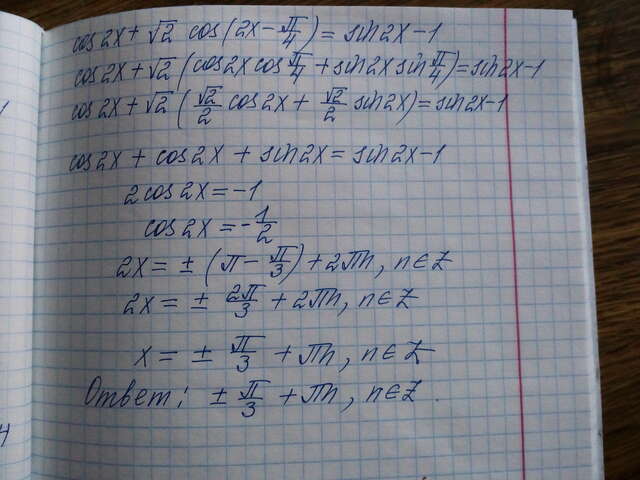 cos2x + √2 cos(2x - π/4) = sin2x - 1
cos2x + √2 (cos2x cos π/4 + sin2x sin π/4) = sin2x - 1
cos2x + √2 (√2/2 cos2x + √2/2 sin2x) = sin2x - 1
cos2x + cos2x + sin2x = sin2x - 1
2cos2x = -1
cos2x = -1/2
2x = ± (π - π/3) + 2πn, n∈Z
2x = ± 2π/3 + 2πn, n∈Z
x = ± π/3 + πn, n∈Z
Ответ: ± π/3 + πn, n∈Z.